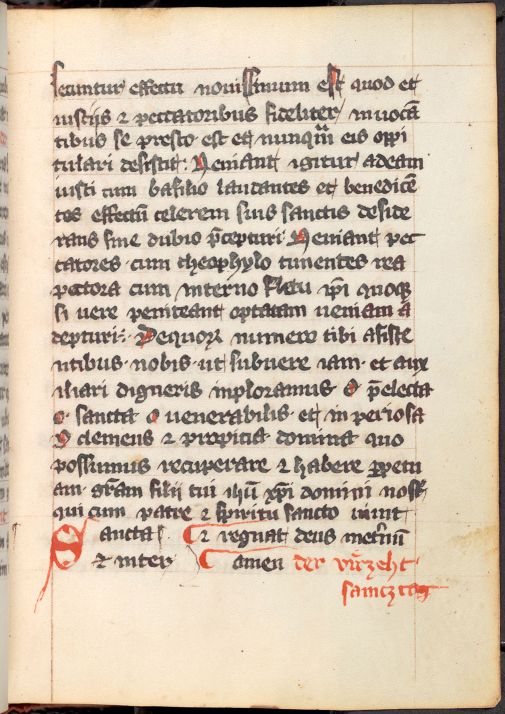 secuntur effectu nouissimum est quod et
iustijs ⁊ peccatoribus fideliter inuocā
tibus se presto est et nunqm̄ eis oppi
tulari desistit: Veniant igitur ad eam
iusti cum basilio laudantes et benedicē
tes effectū celerem suis sanctis deside
rans sine dubio p̄cepturi Veniant pec
catores cum theophylo tunentes rea
pectora cum interno fletu ip̄i quoqꝫ
si uere peniteant optatam ueniam a
depturi: De quorꝝ numero tibi asiste
ntibus nobis ut subuere iam et aux
iliari digneris inploramus O p̄electa
o sancta o uenerabilis et inperiosa
O clemens ⁊ propicia domina quo
possumus recuperare ⁊ habere ꝑpetu
am gr̄am filii tui ihū xp̄i domini nostr̄
qui cum patre ⁊ spiritu sancto uiuit
Sancta ⁊ regnat deus
⁊ inter amen der virzeht
samcztag